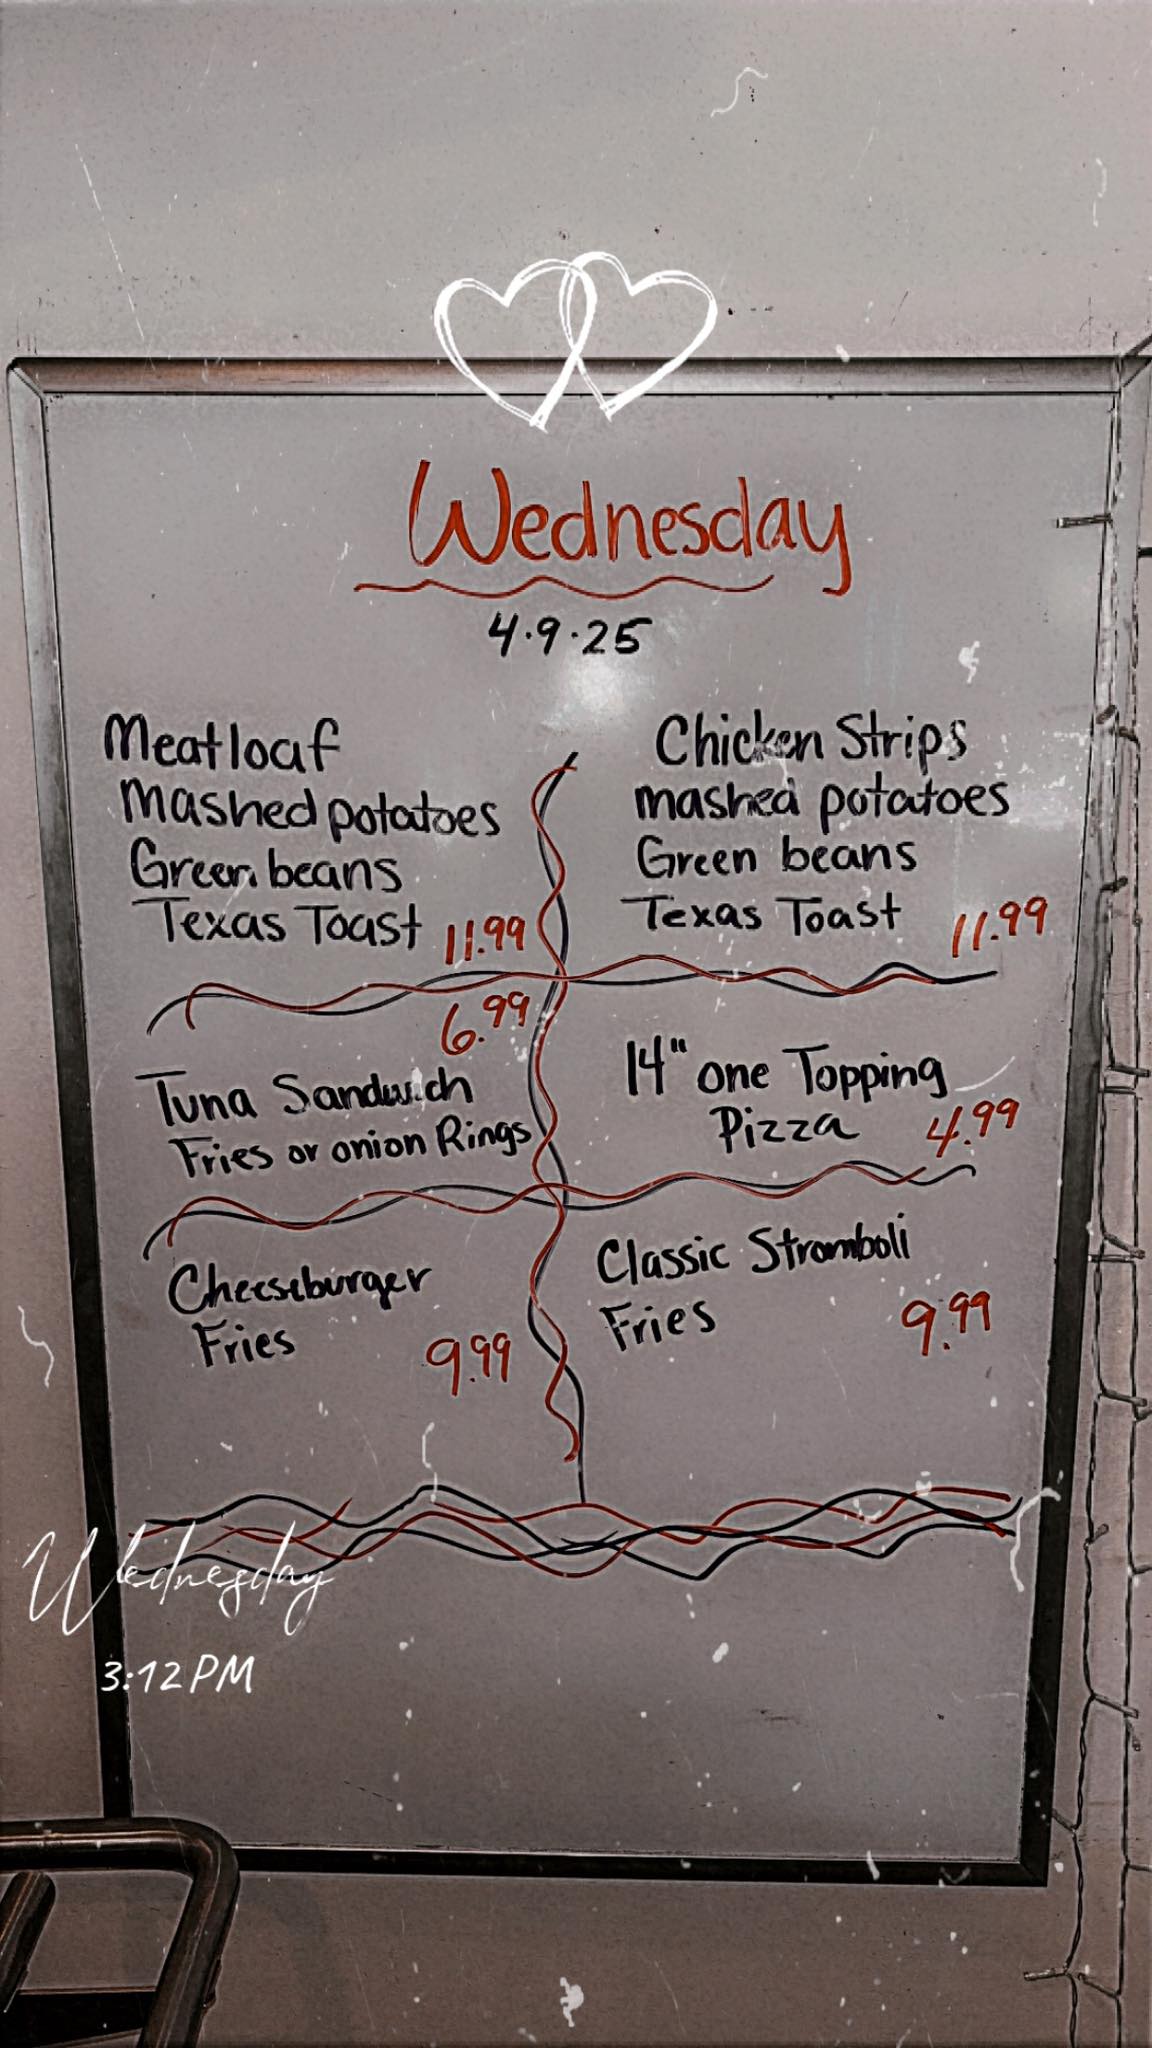 Wednesday
4.9.25
Meatloaf
Mashed potatoes
Green beans
Texas Toast 11.99
Chicken Strips
mashed potatoes
Green beans
Texas Toast 11.99
6.99
Tuna Sandwich
Fries or onion Rings
14" one Topping
Pizza 4.99
Cheeseburger
Fries 9.99
Classic Stromboli
Fries 9.99
Wednesday
3:12 PM